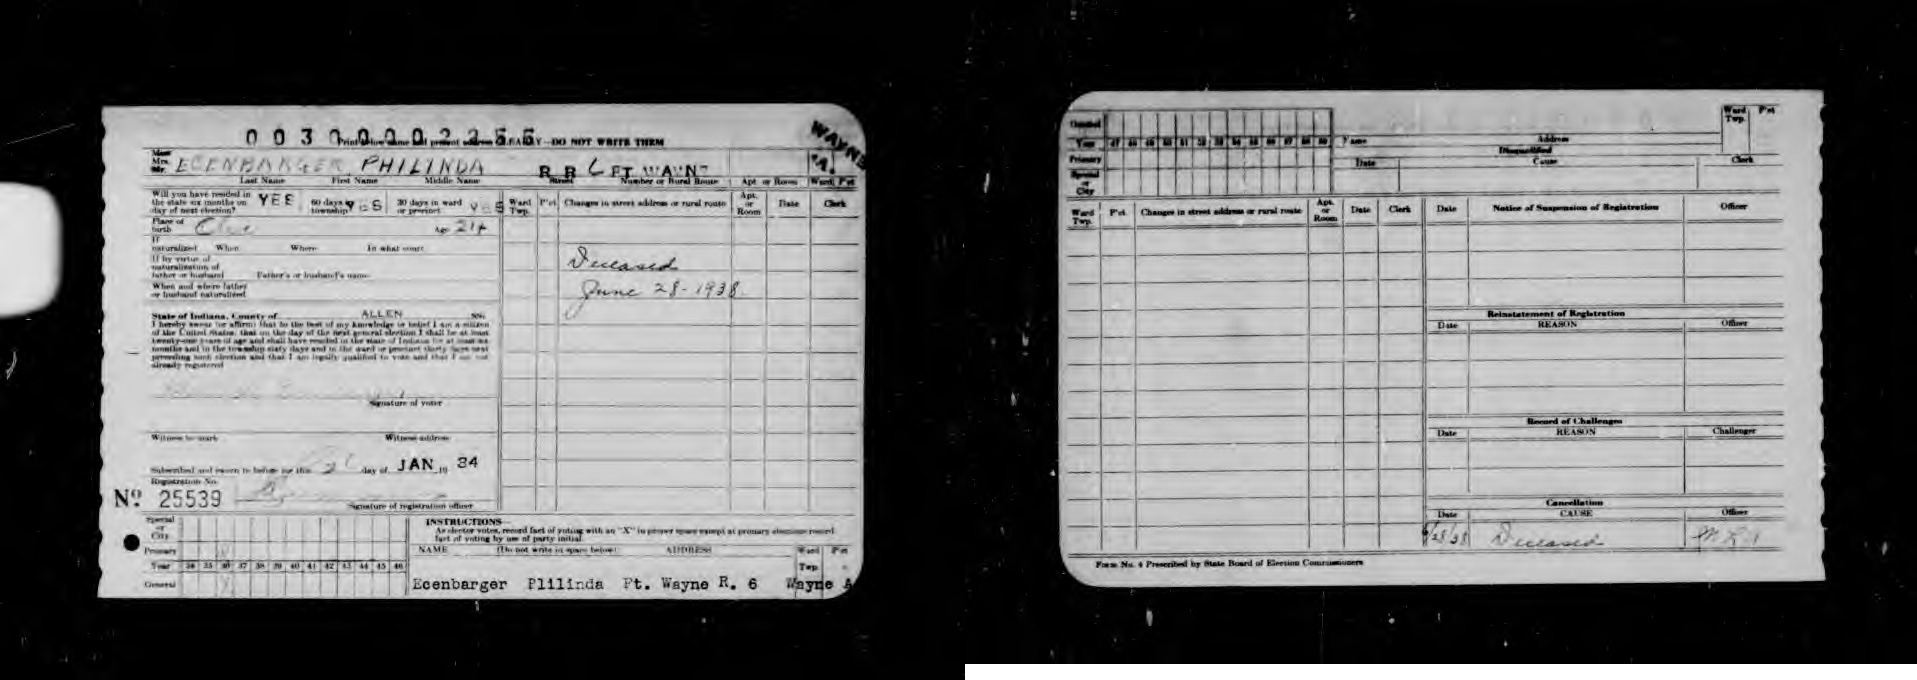 00300002255
Print below name and present address CLEARLY—DO NOT WRITE THEM
WAYNE
Miss
Mrs.
Mr. ECENBARGER PHILINDA R R 6 FT WAYNE "A"
Last Name First Name Middle Name Street Number or Rural Route Apt. or Room Ward P'ct
Will you have resided in the state six months on day of next election? YES 60 days in township? YES 30 days in ward or precinct YES
Ward Twp. P'ct Changes in street address or rural route Apt. or Room Date Clerk
Place of birth Age 21+
If naturalized When Where In what court
If by virtue of naturalization of father or husband Father's or husband's name
When and where father or husband naturalized
Deceased
June 28-1938
State of Indiana, County of ALLEN SS:
I hereby swear (or affirm) that to the best of my knowledge or belief I am a citizen
of the United States, that on the day of the next general election I shall be at least
twenty-one years of age and shall have resided in the state of Indiana for at least six
months and in the township sixty days and in the ward or precinct thirty days next
preceding such election and that I am legally qualified to vote and that I am not
already registered
Signature of voter
Witness to mark Witness address
Subscribed and sworn to before me this day of JAN 19 34
Registration No.
No. 25539
Signature of registration officer
Special or City
Primary
Year 34 35 36 37 38 39 40 41 42 43 44 45 46
General X
INSTRUCTIONS—
As elector votes, record fact of voting with an "X" in proper space except at primary elections record
fact of voting by use of party initial.
NAME (Do not write in space below) ADDRESS Ward Twp. P'ct
Ecenbarger Plilinda Ft. Wayne R. 6 Wayne A
General
Year 47 48 49 50 51 52 53 54 55 56 57 58 59
Primary
Special or City
Name Address Ward Twp. P'ct
Disqualified
Date Cause Clerk
Ward Twp. P'ct Changes in street address or rural route Apt. or Room Date Clerk
Date Notice of Suspension of Registration Officer
Reinstatement of Registration
Date REASON Officer
Record of Challenges
Date REASON Challenger
Cancellation
Date CAUSE Officer
6/28/38 Deceased
Form No. 4 Prescribed by State Board of Election Commissioners